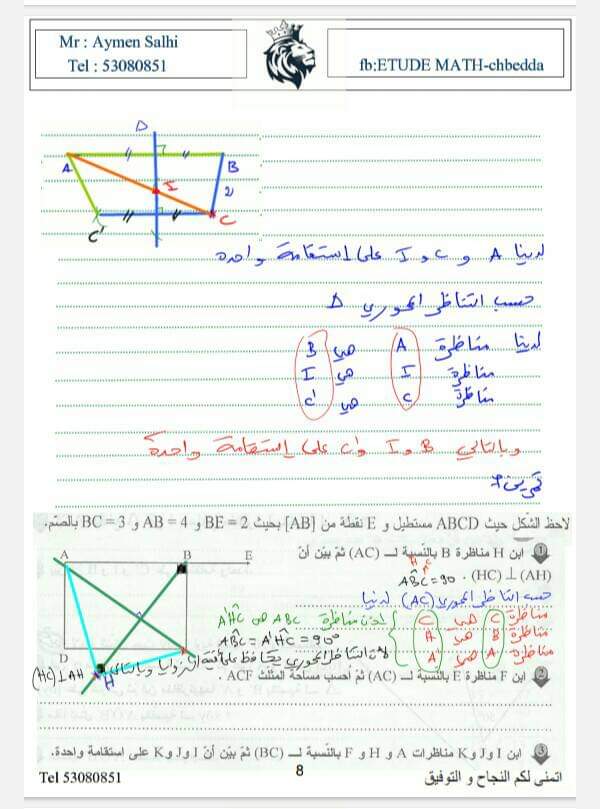 Mr : Aymen Salhi
Tel : 53080851
fb:ETUDE MATH-chbedda
D
A
B
I
C
C'
لدينا A و C و I على إستقامة واحدة
حسب التناظر المحوري Δ
لدينا مناظرة A هي B
مناظرة I هي I
مناظرة C هي C'
وبالتالي B و I و C' على إستقامة واحدة
تمرين
لاحظ الشكل حيث ABCD مستطيل و E نقطة من [AB) بحيث BE = 2 و AB = 4 و BC = 3 بالصم.
A B E
D
H
1 ابن H مناظرة B بالنسبة لـ (AC) ثم بين أن
(HC) ⊥ (AH) .
ABC = 90
حسب التناظر المحوري (AC) لدينا
مناظرة C هي C
مناظرة B هي
مناظرة A هي A
إذن مناظرة ABC
ABC = AHC = 90°
لأن التناظر المحوري يحافظ على أقيسة الزوايا وبالتالي (HC) ⊥ AH
2 ابن F مناظرة E بالنسبة لـ (AC) ثم أحسب مساحة المثلث ACF .
3 ابن I و J و K مناظرات A و H و F بالنسبة لـ (BC) ثم بين أن I و J و K على استقامة واحدة.
Tel 53080851
8
اتمنى لكم النجاح و التوفيق